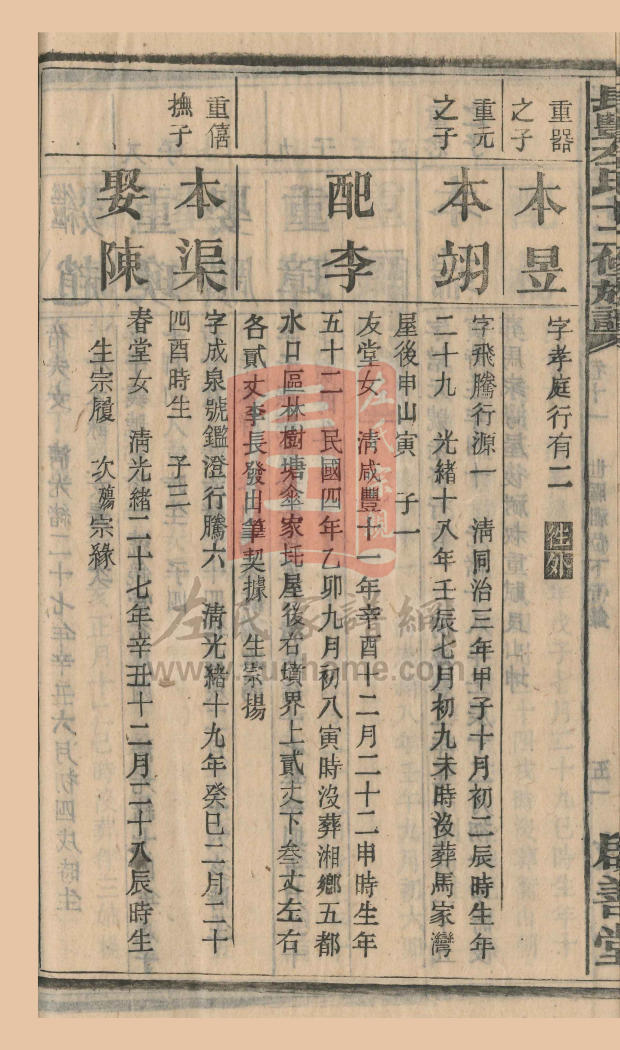 重器
之子
本昱
字孝庭行有二 往外
重元
之子
本翊
字飛騰行源一 淸同治三年甲子十月初二辰時生年
二十九 光緒十八年壬辰七月初九未時沒葬馬家灣
屋後申山寅 子一
配李
友堂女 淸咸豐十一年辛酉十二月二十二申時生年
五十二 民國四年乙卯九月初八寅時沒葬湘鄉五都
水口區林樹塘傘家圫屋後右墳界上貳丈下叁丈左右
各貳丈李長發出筆契據 生宗揚
重僖
撫子
本渠
字成泉號鑑澄行騰六 淸光緒十九年癸巳二月二十
四酉時生 子三
娶陳
春堂女 淸光緒二十七年辛丑十二月二十八辰時生
生宗履 次殤宗緣
十二修族譜
卷十一
五一
啟善堂
www.zushome.com